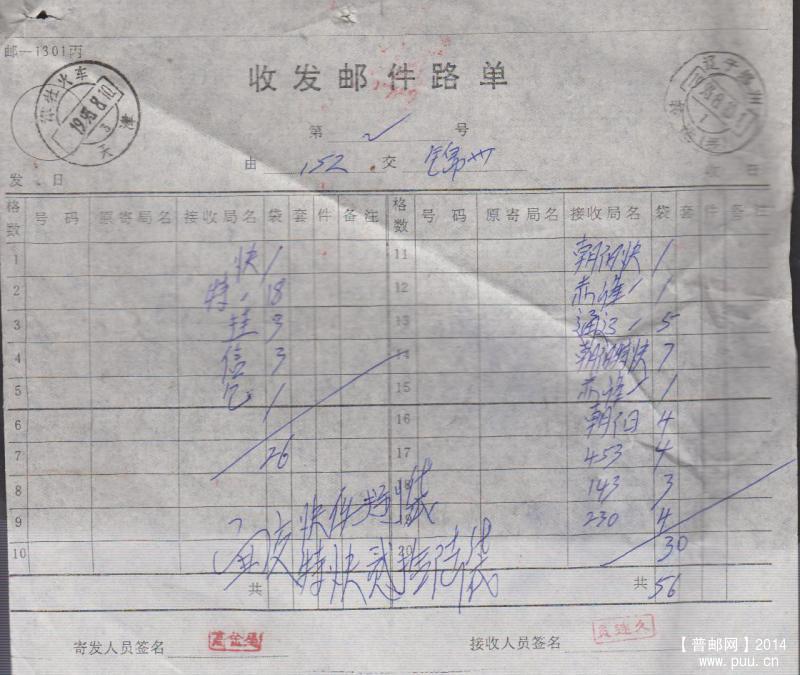 邮—1301丙
收发邮件路单
锦州火车
1995.8.10
3
天津
辽宁锦州
1
第 2 号
由 152 交 锦州
发 月 日
格数 号码 原寄局名 接收局名 袋 套 件 备注 格数 号码 原寄局名 接收局名 袋 套 件 备注
1 快 1 11 朝阳快 1
2 特〃 18 12 赤峰〃 1
3 挂 3 13 通辽〃 5
4 信 3 14 朝阳特快 7
5 1 15 赤峰〃 1
6 16 朝阳 4
7 26 17 453 4
8 18 143 3
9 19 230 4
10 20 30
快件
特快
共 共 56
寄发人员签名 接收人员签名
【普邮网】2014
www.puu.cn